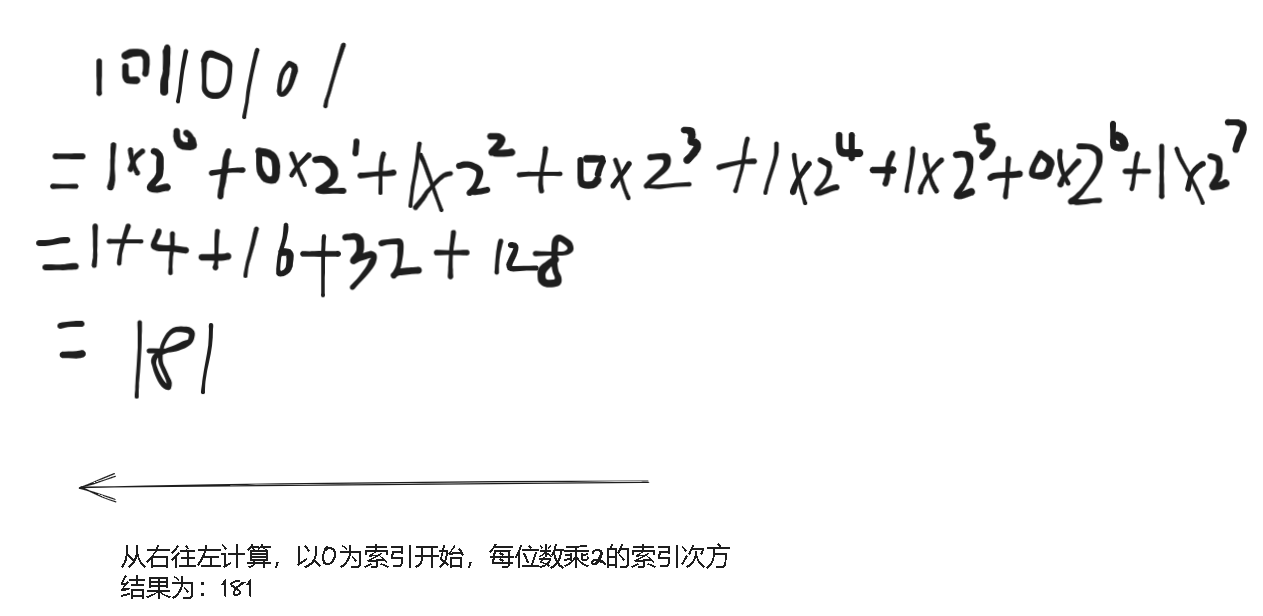 10110101
=1×2⁰+0×2¹+1×2²+0×2³+1×2⁴+1×2⁵+0×2⁶+1×2⁷
=1+4+16+32+128
=181
从右往左计算，以0为索引开始，每位数乘2的索引次方
结果为：181